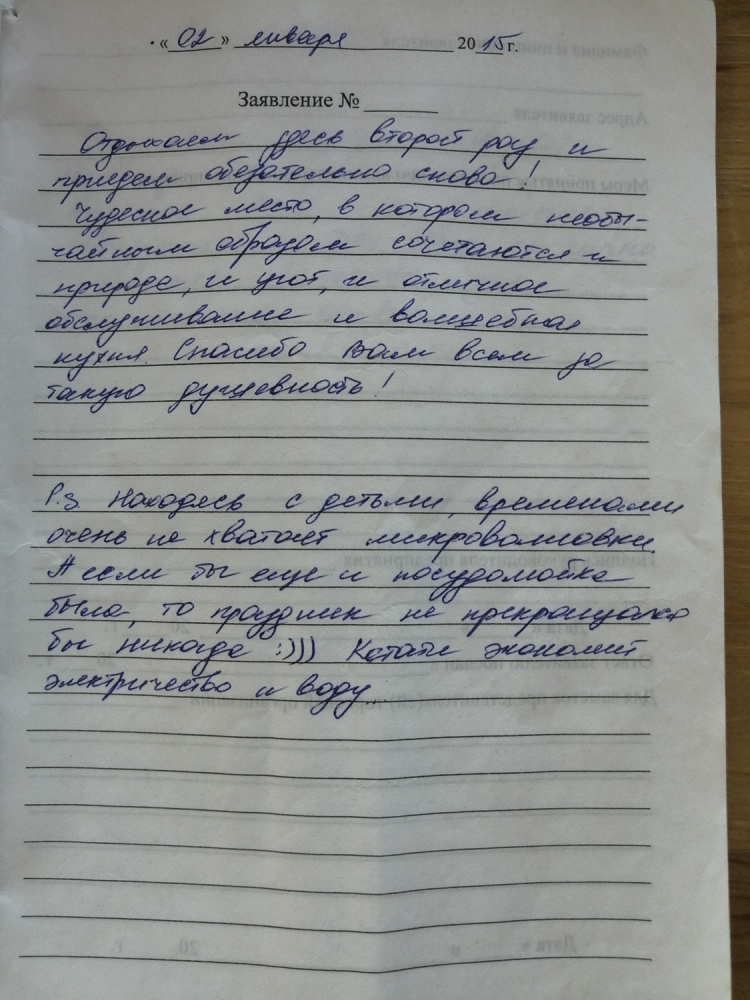 «02» января 2015 г.
Заявление №
Отдыхаем здесь второй раз и
приедем обезательно снова!
Чудесное место, в котором необы-
чайным образом сочетаются и
природа, и уют, и отличное
обслуживание и волшебная
кухня. Спасибо Вам всем за
такую душевность!
P.S. Находясь с детьми, временами
очень не хватает микроволновки.
А если бы еще и посудомойка
была, то праздник не прекращался
бы никогда :))) Кстати экономит
электричество и воду...